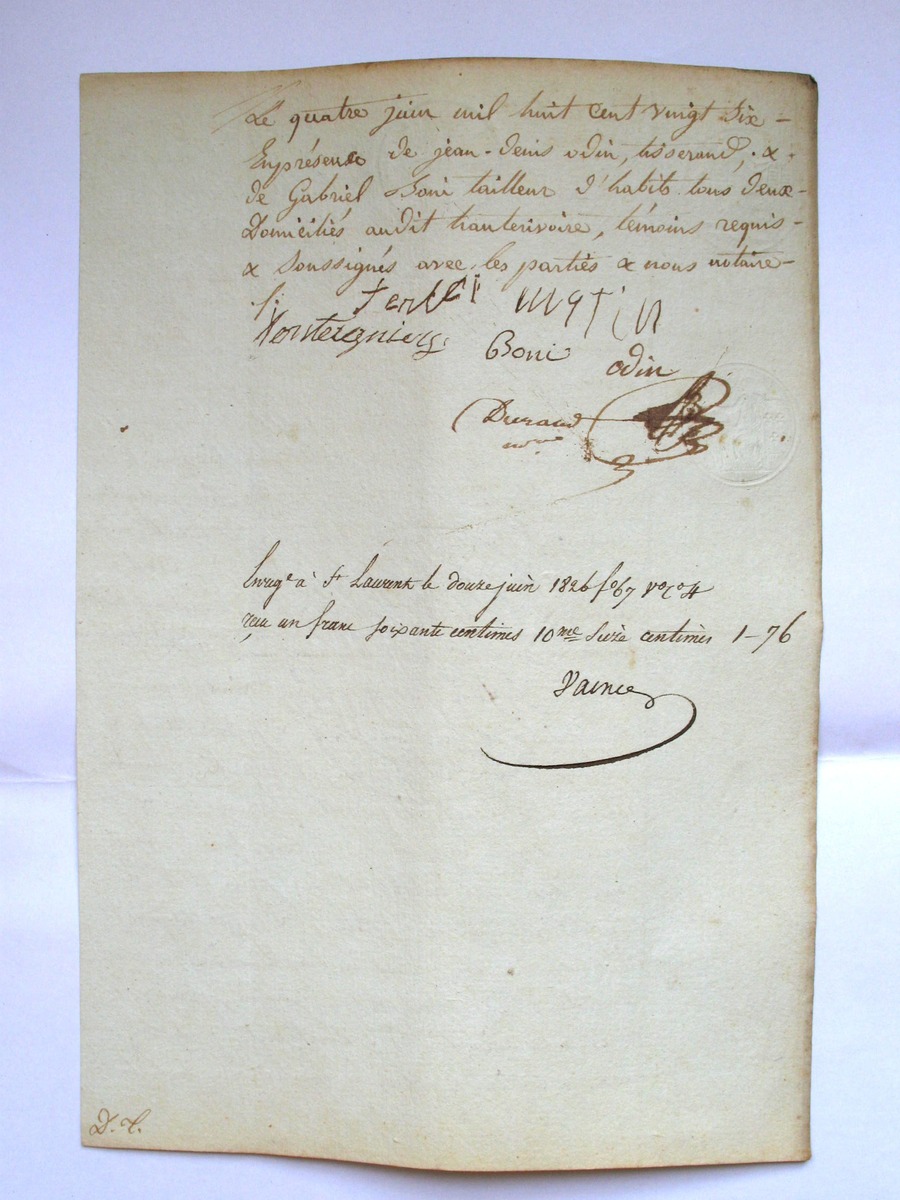 Le quatre juin mil huit cent vingt six -
En présence de jean-denis odin, tisserand, &.
de Gabriel Boni tailleur d'habits tous deux-
Domiciliés audit hauterivoire, témoins requis-
& soussignés avec les parties & nous notaire-
Boni odin
Durand
nore
Enregé à St Laurent le douze juin 1826 fo 67 vo co 4
reçu un franc soixante centimes 10me seize centimes 1-76
D. C.